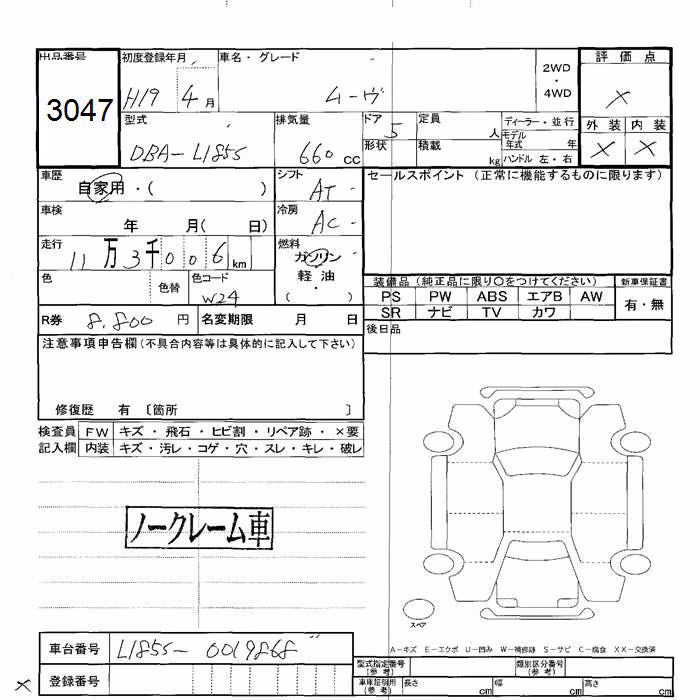 出品番号 初度登録年月 車名・グレード 2WD・4WD 評価点
3047 H19 4月 ムーヴ ×
型式 排気量 ドア 定員 ディーラー・並行 外装 内装
DBA-L185S 660cc 5 人 モデル年式 年 × ×
形状 積載 kg ハンドル 左・右
車歴 シフト セールスポイント(正常に機能するものに限ります)
自家用・( ) AT
車検 冷房
年 月( 日) AC
走行 燃料
11万3千006km ガソリン
軽油・
( )
色 色替 色コード
W24
装備品(純正品に限り○をつけてください) 新車保証書
PS PW ABS エアB AW 有・無
SR ナビ TV カワ
R券 8,800円 名変期限 月 日
後日品
注意事項申告欄(不具合内容等は具体的に記入して下さい)
修復歴 有 〔箇所 〕
検査員 FW キズ・飛石・ヒビ割・リペア跡・×要
記入欄 内装 キズ・汚レ・コゲ・穴・スレ・キレ・破レ
ノークレーム車
スペア
A-キズ E-エクボ U-凹み W-補修跡 S-サビ C-腐食 XX-交換済
車台番号 L185S-0019868
型式指定番号(参考) 類別区分番号(参考)
× 登録番号
車庫証明用(参考) 長さ cm 幅 cm 高さ cm